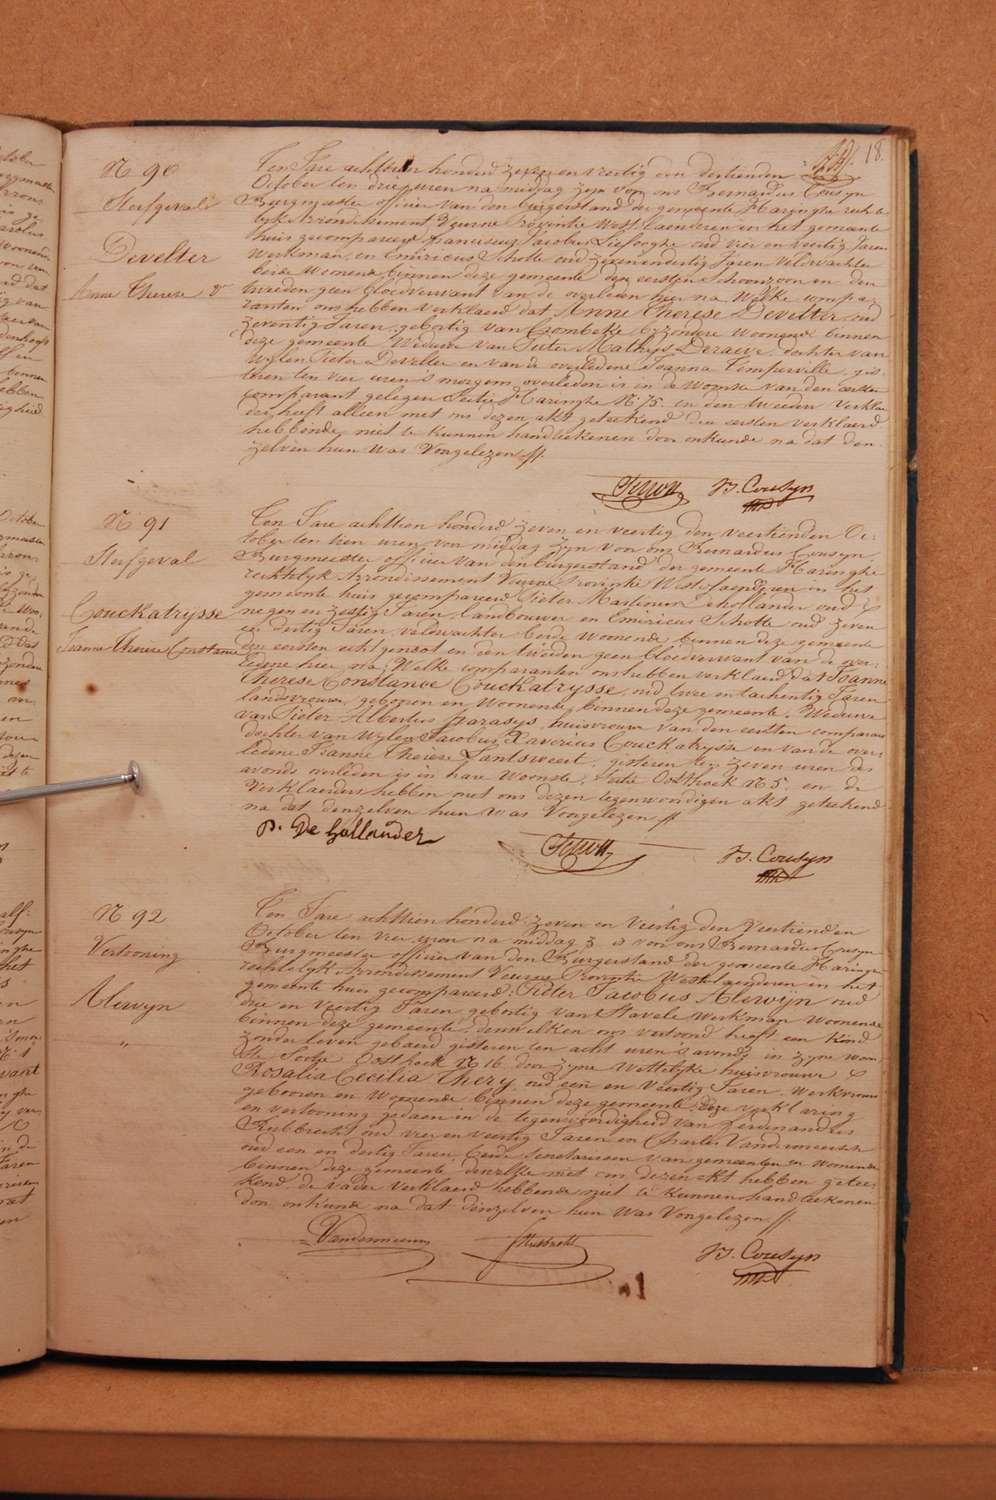 18.
N 90
Sterfgeval
Develter
Anne Therese
Ten Jare achttien honderd zeven en veertig den dertienden
October ten drie uren na middag zyn voor ons Bernardus Cousyn
Burgmeester officier van den burgerstand der gemeente Haringhe rechte
lyk Arrondissement Veurne Provintie West Vlaenderen in het gemeente
huis gecompareerd Franciscus Jacobus oud vier en veertig Jaren
Werkman, en Emiricus Schotte oud zeven en dertig Jaren Veldwachter
beide Woonende binnen deze gemeente den eersten Schoonzoon en den
tweeden geen bloedverwant van de overledene hier na Welke compa-
ranten ons hebben verklaerd dat Anne Therese Develter oud
zeventig Jaren, gebortig van Crombeke byzondere woonende binnen
deze gemeente Weduwe van Pieter Mathys Deraeve dochter van
Wylen Pieter Develter en van de overledene Joanna gis-
teren ten vier uren 's morgens overleden is in de Woonste van den eersten
comparant gelegen Sectie Haringhe N. 75 en den tweeden verklae
der heeft alleen met ons dezen akt geteekend den eersten verklaerd
hebbende niet te kunnen handteekenen door onkunde na dat den
zelven hun was Voorgelezen //.
B. Cousyn
N 91
Sterfgeval
Couckatrysse
Joanna Therese Constance
Ten Jare achttien honderd zeven en veertig den veertienden Oc-
tober ten tien uren voor middag zyn voor ons Bernardus Cousyn
Burgmeester officier van den burgerstand der gemeente Haringhe
rechtelyk Arrondissement Veurne Provintie West-Vlaenderen in het
gemeente huis gecompareerd Pieter Martinus Dehollander oud
negen en zestig Jaren Landbouwer en Emiricus Schotte oud zeven
en dertig Jaren veldwachter beide woonende binnen deze gemeente
den eersten echtgenoot en den tweeden geen bloedverwant van de over-
ledene hier na; Welke comparanten ons hebben verklaerd dat Joanne
Therese Constance Couckatrysse oud twee en tachentig Jaren
landsvrouw, geboren en Woonende binnen deze gemeente, Weduwe
van Pieter Albertus Parasys, huisvrouw van den eersten comparant
dochter van wylen Jacobus Xaverius Couckatrysse en van de over-
ledene Joanne Therese Lantsweert, gisteren ten zeven uren des
avonds overleden is in hare Woonste, Sectie Oosthoek N 5. en de
Verklaerders hebben met ons dezen tegenwoordigen akt geteekend
na dat denzelven hun was Voorgelezen //
P. De hollander
B. Cousyn
N 92
Vertooning
Alewyn
"
Ten Jare achttien honderd zeven en veertig den Veertienden
October ten vier uren na middag voor ons Bernardus Cousyn
Burgmeester officier van den Burgerstand der gemeente Haringhe
rechtelyk Arrondissement Veurne Provintie West Vlaenderen in het
gemeente huis gecompareerd: Pieter Jacobus Alewijn oud
drie en Veertig Jaren, gebortig van Stavele werkman woonende
binnen deze gemeente, denwelken ons vertoond heeft een Kind
zonder leven gebaerd gisteren ten acht uren 's avonds in zyne woon-
ste Sectie Oosthoek N 16. door zyne Wettelyke huisvrouwe
Rosalia Cecilia Thery, oud een en Veertig Jaren, werkvrouw
geboren en Woonende binnen deze gemeente; deze verklaring
en vertooning gedaen in de tegenwoordigheid van Ferdinandus
oud vier en veertig Jaren en Charles Vandromme
oud een en dertig Jaren beide Secretarissen van gemeenten en woonende
binnen deze gemeente, denzelke met ons dezen akt hebben getee-
kend de vader verklaerd hebbende niet te kunnen handteekenen
door onkunde na dat denzelven hun was Voorgelezen //.
B. Cousyn